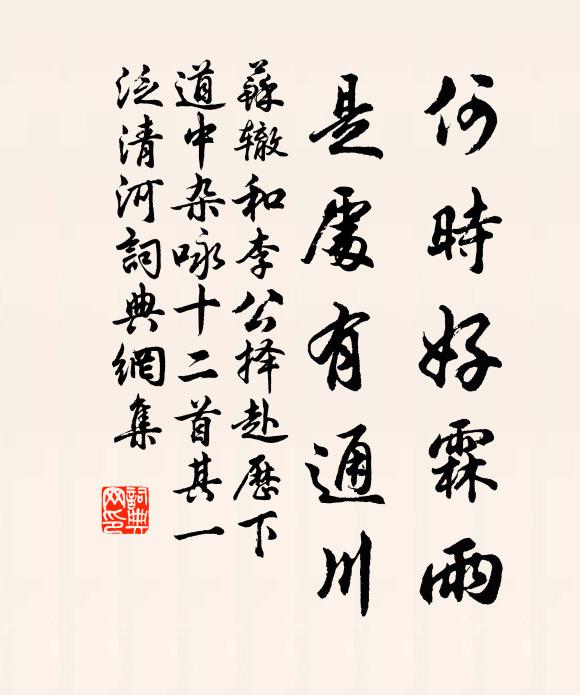 何時好霖雨
是處有通川
蘇辙和李公择赴歷下
道中杂咏十二首其一
泛清河詞典網集
詞典网印